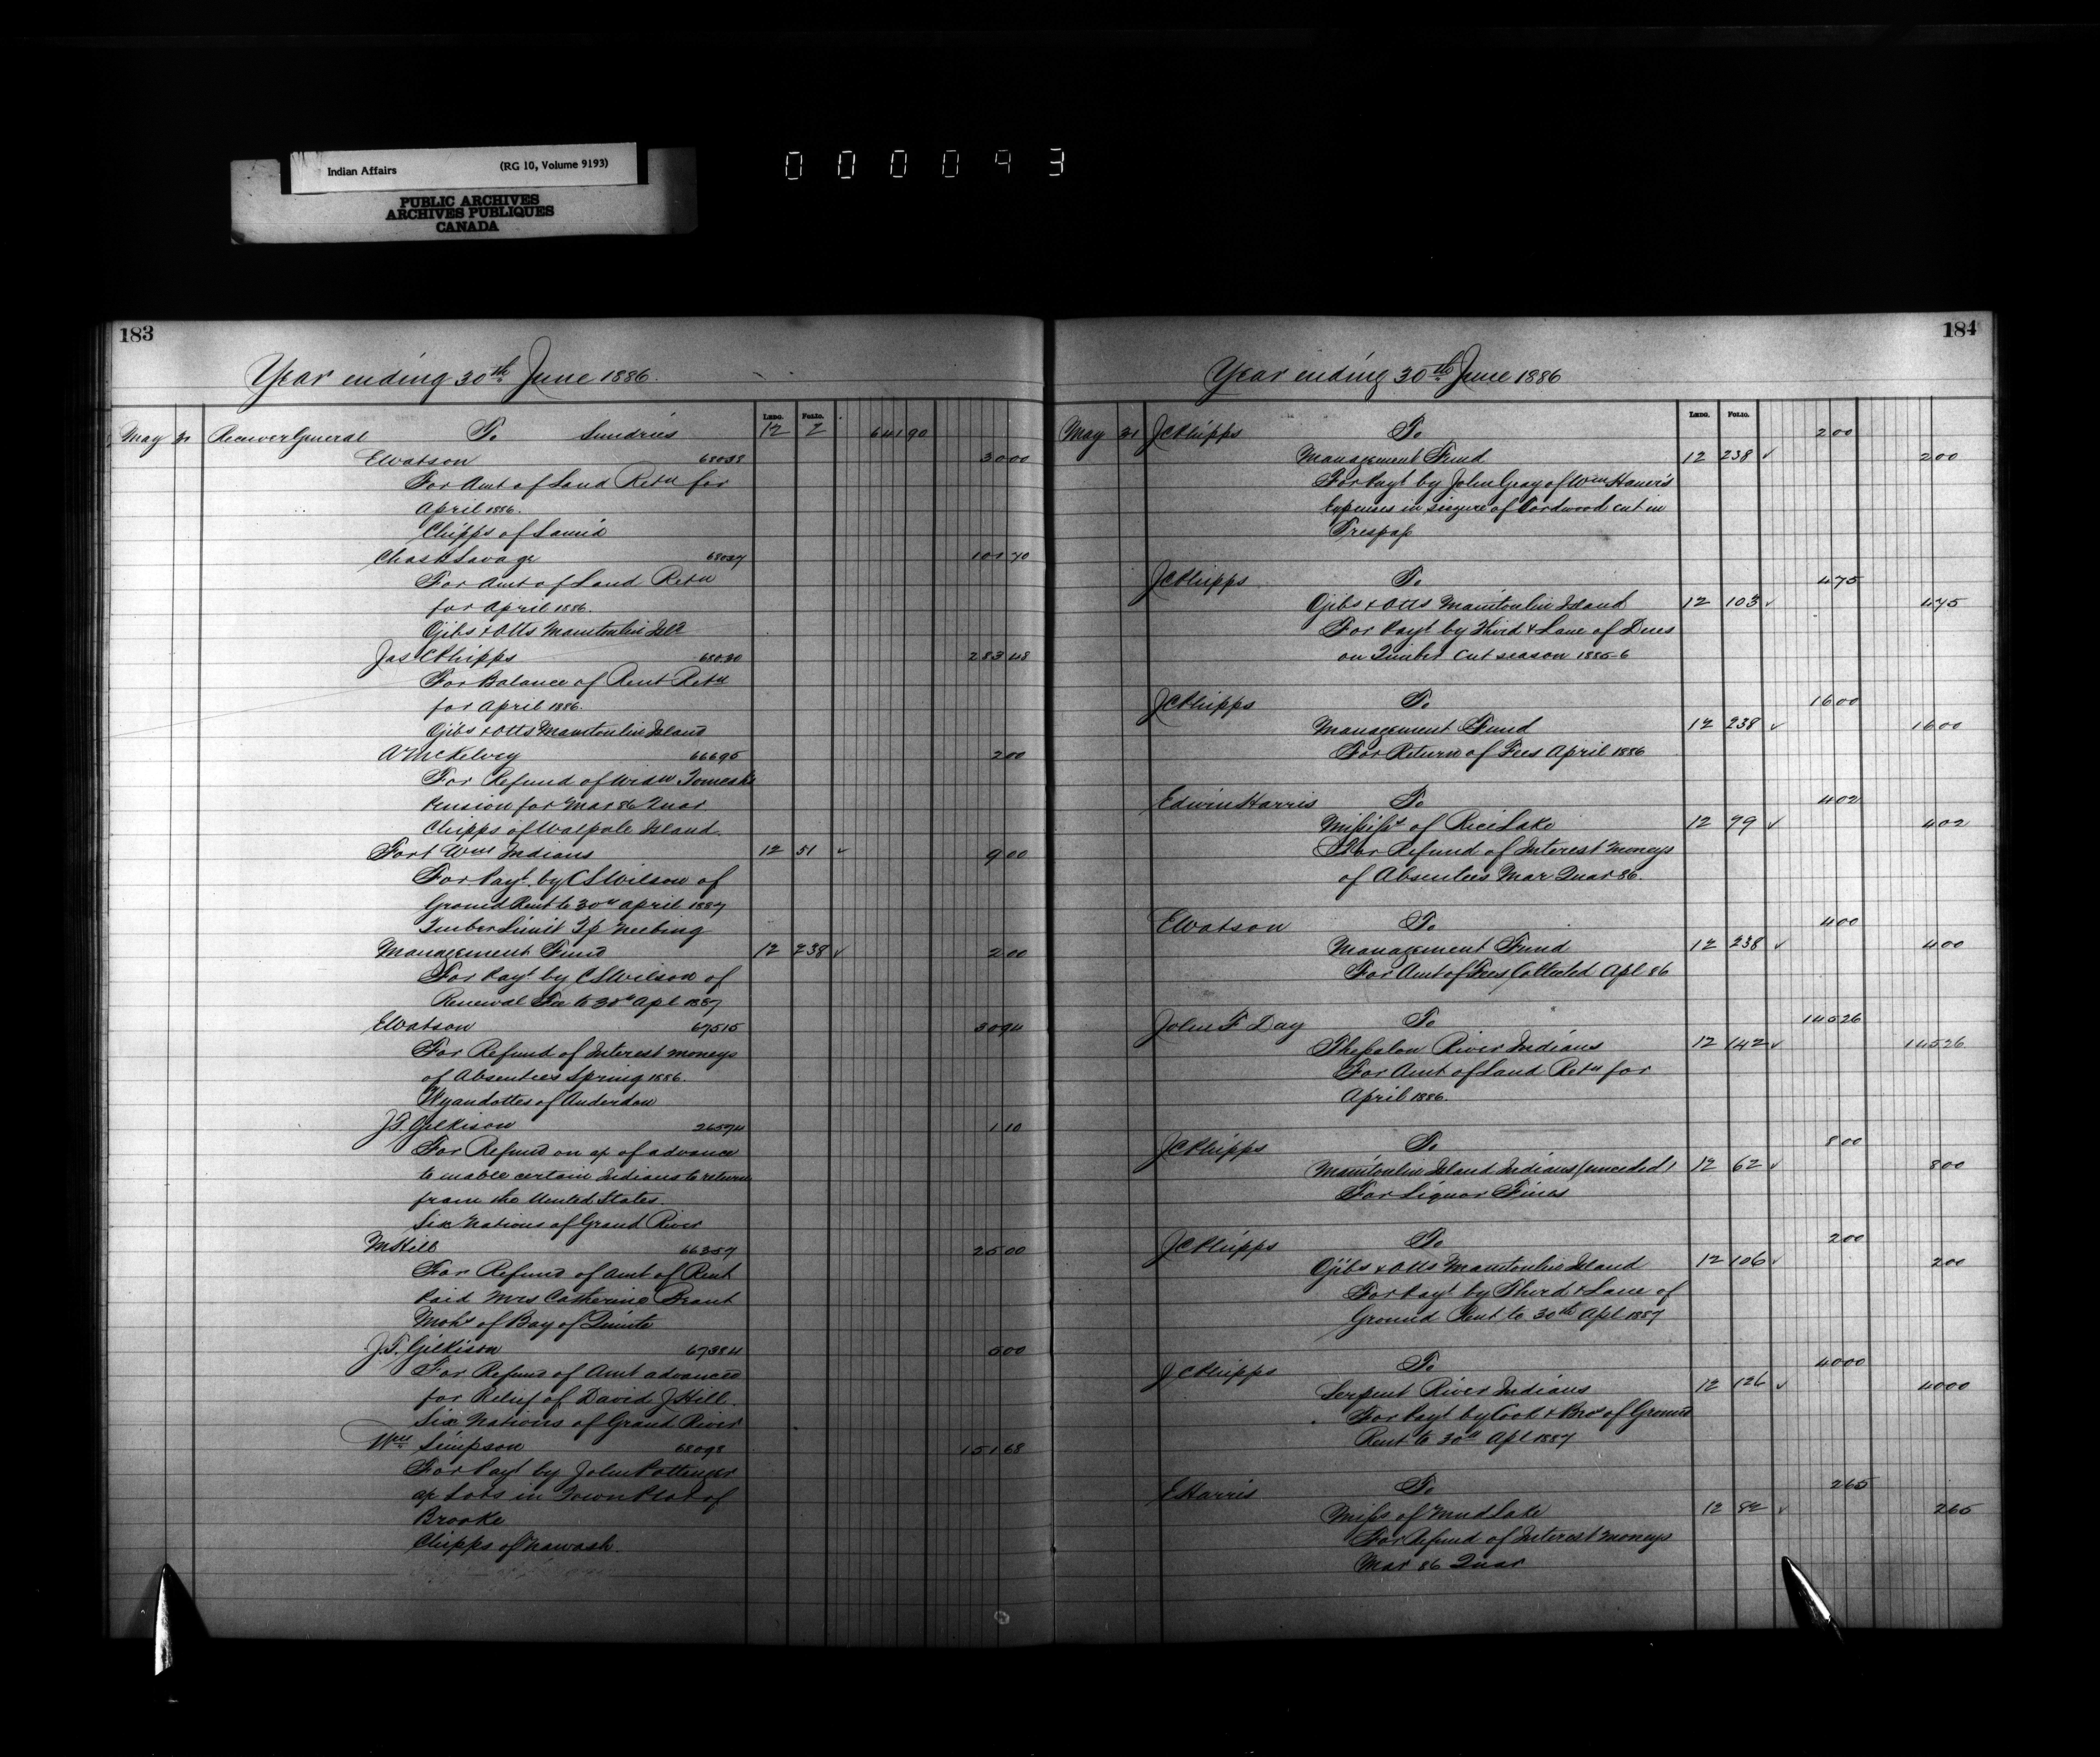 Indian Affairs (RG 10, Volume 9193)
PUBLIC ARCHIVES
ARCHIVES PUBLIQUES
CANADA
000093
183
Year ending 30th June 1886.
LEDG. FOLIO.
May 31 Receiver General To Sundries 12 2 641 90
E Watson 68038 30 00
For Amt of Land Retn for
April 1886.
Chipps of Sarnia
Chas L Savage 68027 101 70
For Amt of Land Retn
for April 1886.
Ojibs & Otts Manitoulin Isld
Jas C Phipps 68030 283 48
For Balance of Rent Retn
for April 1886.
Ojibs & Otts Manitoulin Island
A McKelvey 66695 2 00
For Refund of Widw
Pension for Mar 86 Quar
Chipps of Walpole Island.
Fort Wm Indians 12 51 ✓ 9 00
For Payt by C S Wilson of
Ground Rent to 30th April 1887
Timber Limit Tp Neebing
Management Fund 12 238 ✓ 2 00
For Payt by C S Wilson of
Renewal Fee to 30th Apl 1887
E Watson 67515 30 94
For Refund of Interest moneys
of Absentees Spring 1886.
Wyandottes of Anderdon
J.T. Gilkison 26574 1 10
For Refund on a/c of advance
to enable certain Indians to return
from the United States
Six Nations of Grand River
M Hill 66357 25 00
For Refund of Amt of Rent
Paid Mrs Catherine Brant
Mohs of Bay of Quinte
J.T. Gilkison 67384 5 00
For Refund of Amt advanced
for Relief of David J Hill.
Six Nations of Grand River
Wm Simpson 68098 151 68
For Payt by John Pottenger
a/c Lots in Town Plot of
Brooke
Chipps of Nawash.
184
Year ending 30th June 1886
LEDG. FOLIO.
May 31 J C Phipps To 2 00
Management Fund 12 238 ✓ 2 00
For Payt by John Gray of Wm
Expenses in Seizure of Cordwood cut in
Trespass
J C Phipps To 4 75
Ojibs & Otts Manitoulin Island 12 103 ✓ 4 75
For Payt by Hurd & Lane of Dues
on Timber cut season 1885-6
J C Phipps To 16 00
Management Fund 12 238 ✓ 16 00
For Return of Fees April 1886
Edwin Harris To 4 02
Mississs of Rice Lake 12 79 ✓ 4 02
For Refund of Interest Moneys
of Absentees Mar Quar 86.
E Watson To 4 00
Management Fund 12 238 ✓ 4 00
For Amt of Fees Collected Apl 86
John F Day To 145 26
Thessalon River Indians 12 142 ✓ 145 26
For Amt of Land Retn for
April 1886.
J C Phipps To 8 00
Manitoulin Island Indians (unceded) 12 62 ✓ 8 00
For Liquor Fines
J C Phipps To 2 00
Ojibs & Otts Manitoulin Island 12 106 ✓ 2 00
For Payt by Hurd & Lane of
Ground Rent to 30th Apl 1887
J C Phipps To 40 00
Serpent River Indians 12 126 ✓ 40 00
For Payt by Cook & Bros of Ground
Rent to 30th Apl 1887
E Harris To 2 65
Misss of Mud Lake 12 82 ✓ 2 65
For Refund of Interest Moneys
Mar 86 Quar